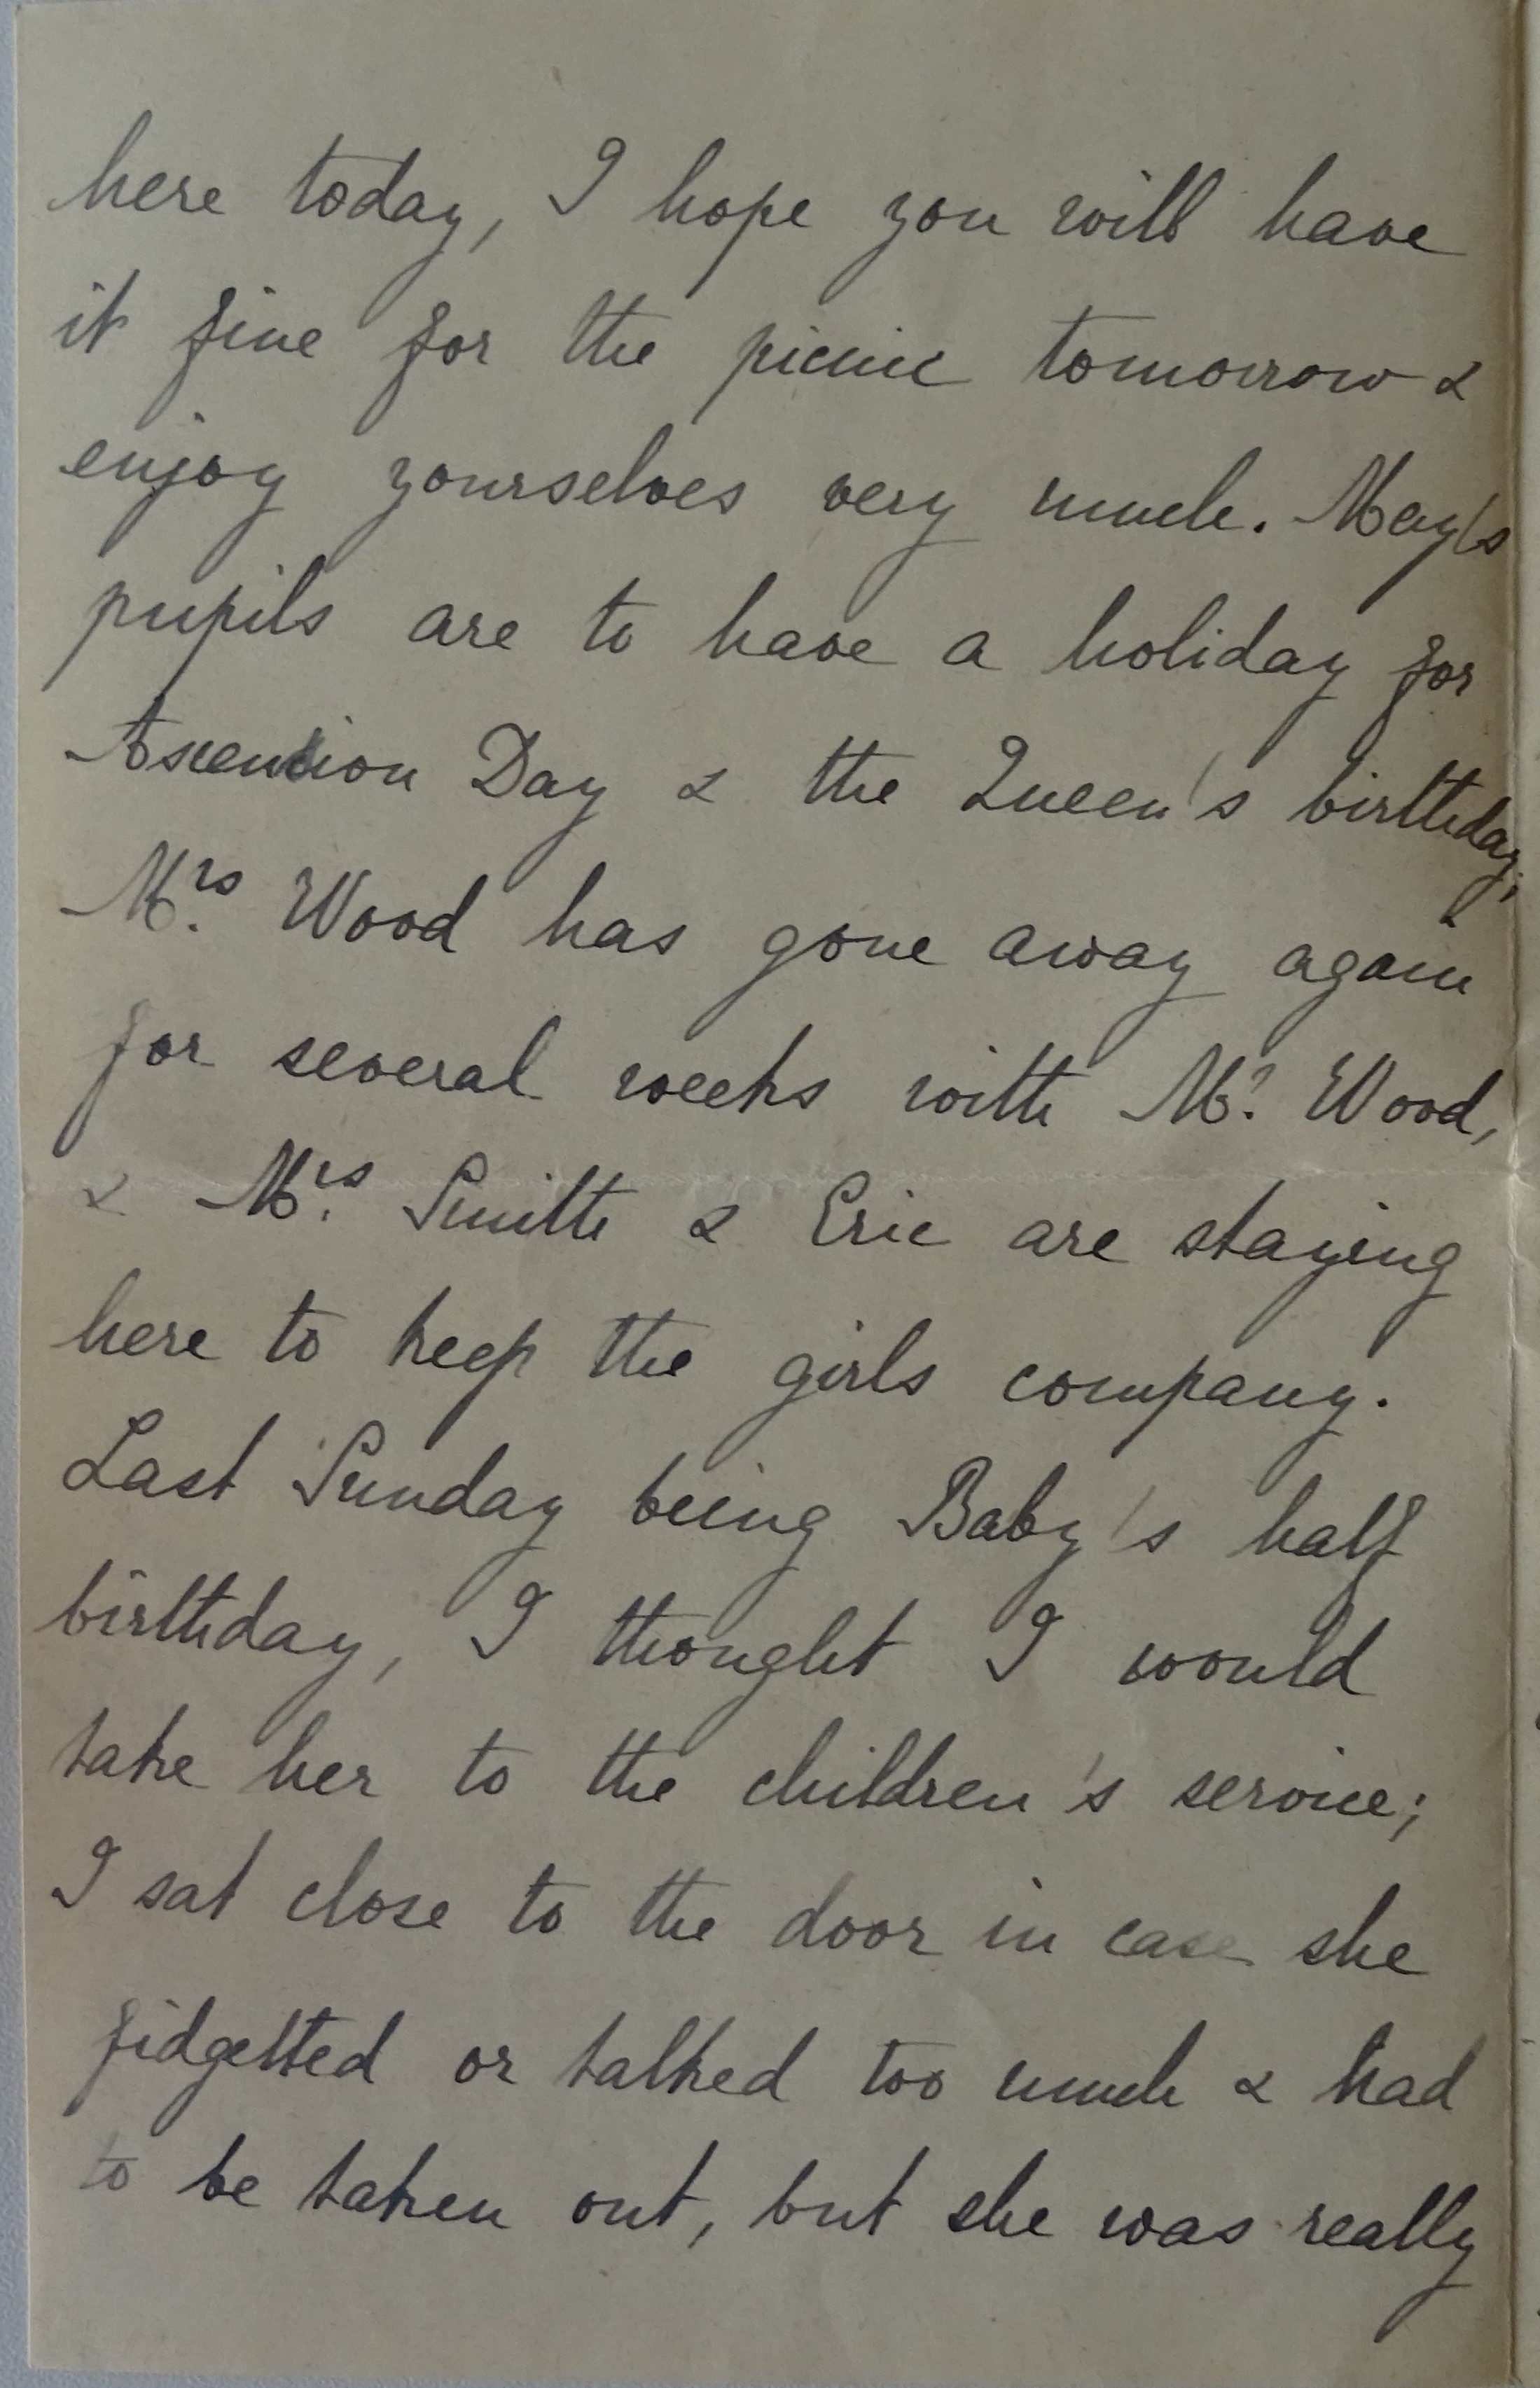 here today, I hope you will have
it fine for the picnic tomorrow &
enjoy yourselves very much. May's
pupils are to have a holiday for
Ascension Day & the Queen's birthday;
Mrs. Wood has gone away again
for several weeks with Mr. Wood,
& Mrs. Smith & Eric are staying
here to keep the girls company.
Last Sunday being Baby's half
birthday, I thought I would
take her to the children's service;
I sat close to the door in case she
fidgetted or talked too much & had
to be taken out, but she was really